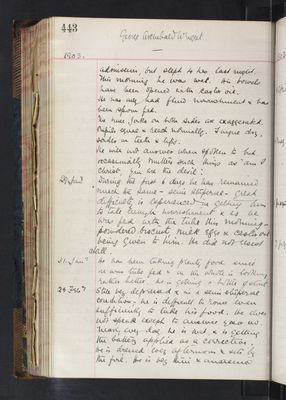 443
George Archibald Wright
1903.
admission, but slept 4 hrs last night.
This morning he was wet. His bowels
have been opened with castor oil.
He has only had fluid nourishment & has
been spoon fed.
The knee jerks on both sides are exaggerated.
Pupils equal & react normally. Tongue dry,
sordes on teeth & lips.
He will not answer when spoken to but
occasionally mutters such things as "am I
Christ, I'm the devil."
During the past 6 days he has remained
much the same - semi stuporose - Great
difficulty is experienced in getting him
to take enough nourishment & so he
was fed with the tube this morning -
powdered biscuit, milk, eggs & castor oil
being given to him. He did not resist
at all.
31. Jan. He has been taking plenty food since
he was tube fed & on the whole is looking
rather better. He is getting a bottle of stout
24 Feb. Still very depressed & in a semi stuporose
condition. He is difficult to rouse even
sufficiently to take his food. He does
not speak except to answer yes or no.
Nearly every day he is wet & is getting
the battery applied as a corrective.
He is dressed every afternoon & sits by
the fire. He is very thin & anaemic